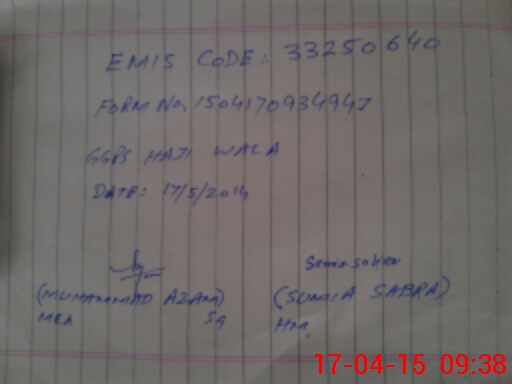 EMIS CODE: 33250640
FORM NO. 150417093494J
GGPS HAJI WALA
DATE: 17/5/2014
(MUHAMMAD AZAM)
MEA SA
Sumia Sabra
(SUMIA SABRA)
HM
17-04-15 09:38